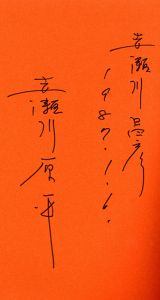 赤瀬川 彦
1987.1.6.
赤瀬川原平